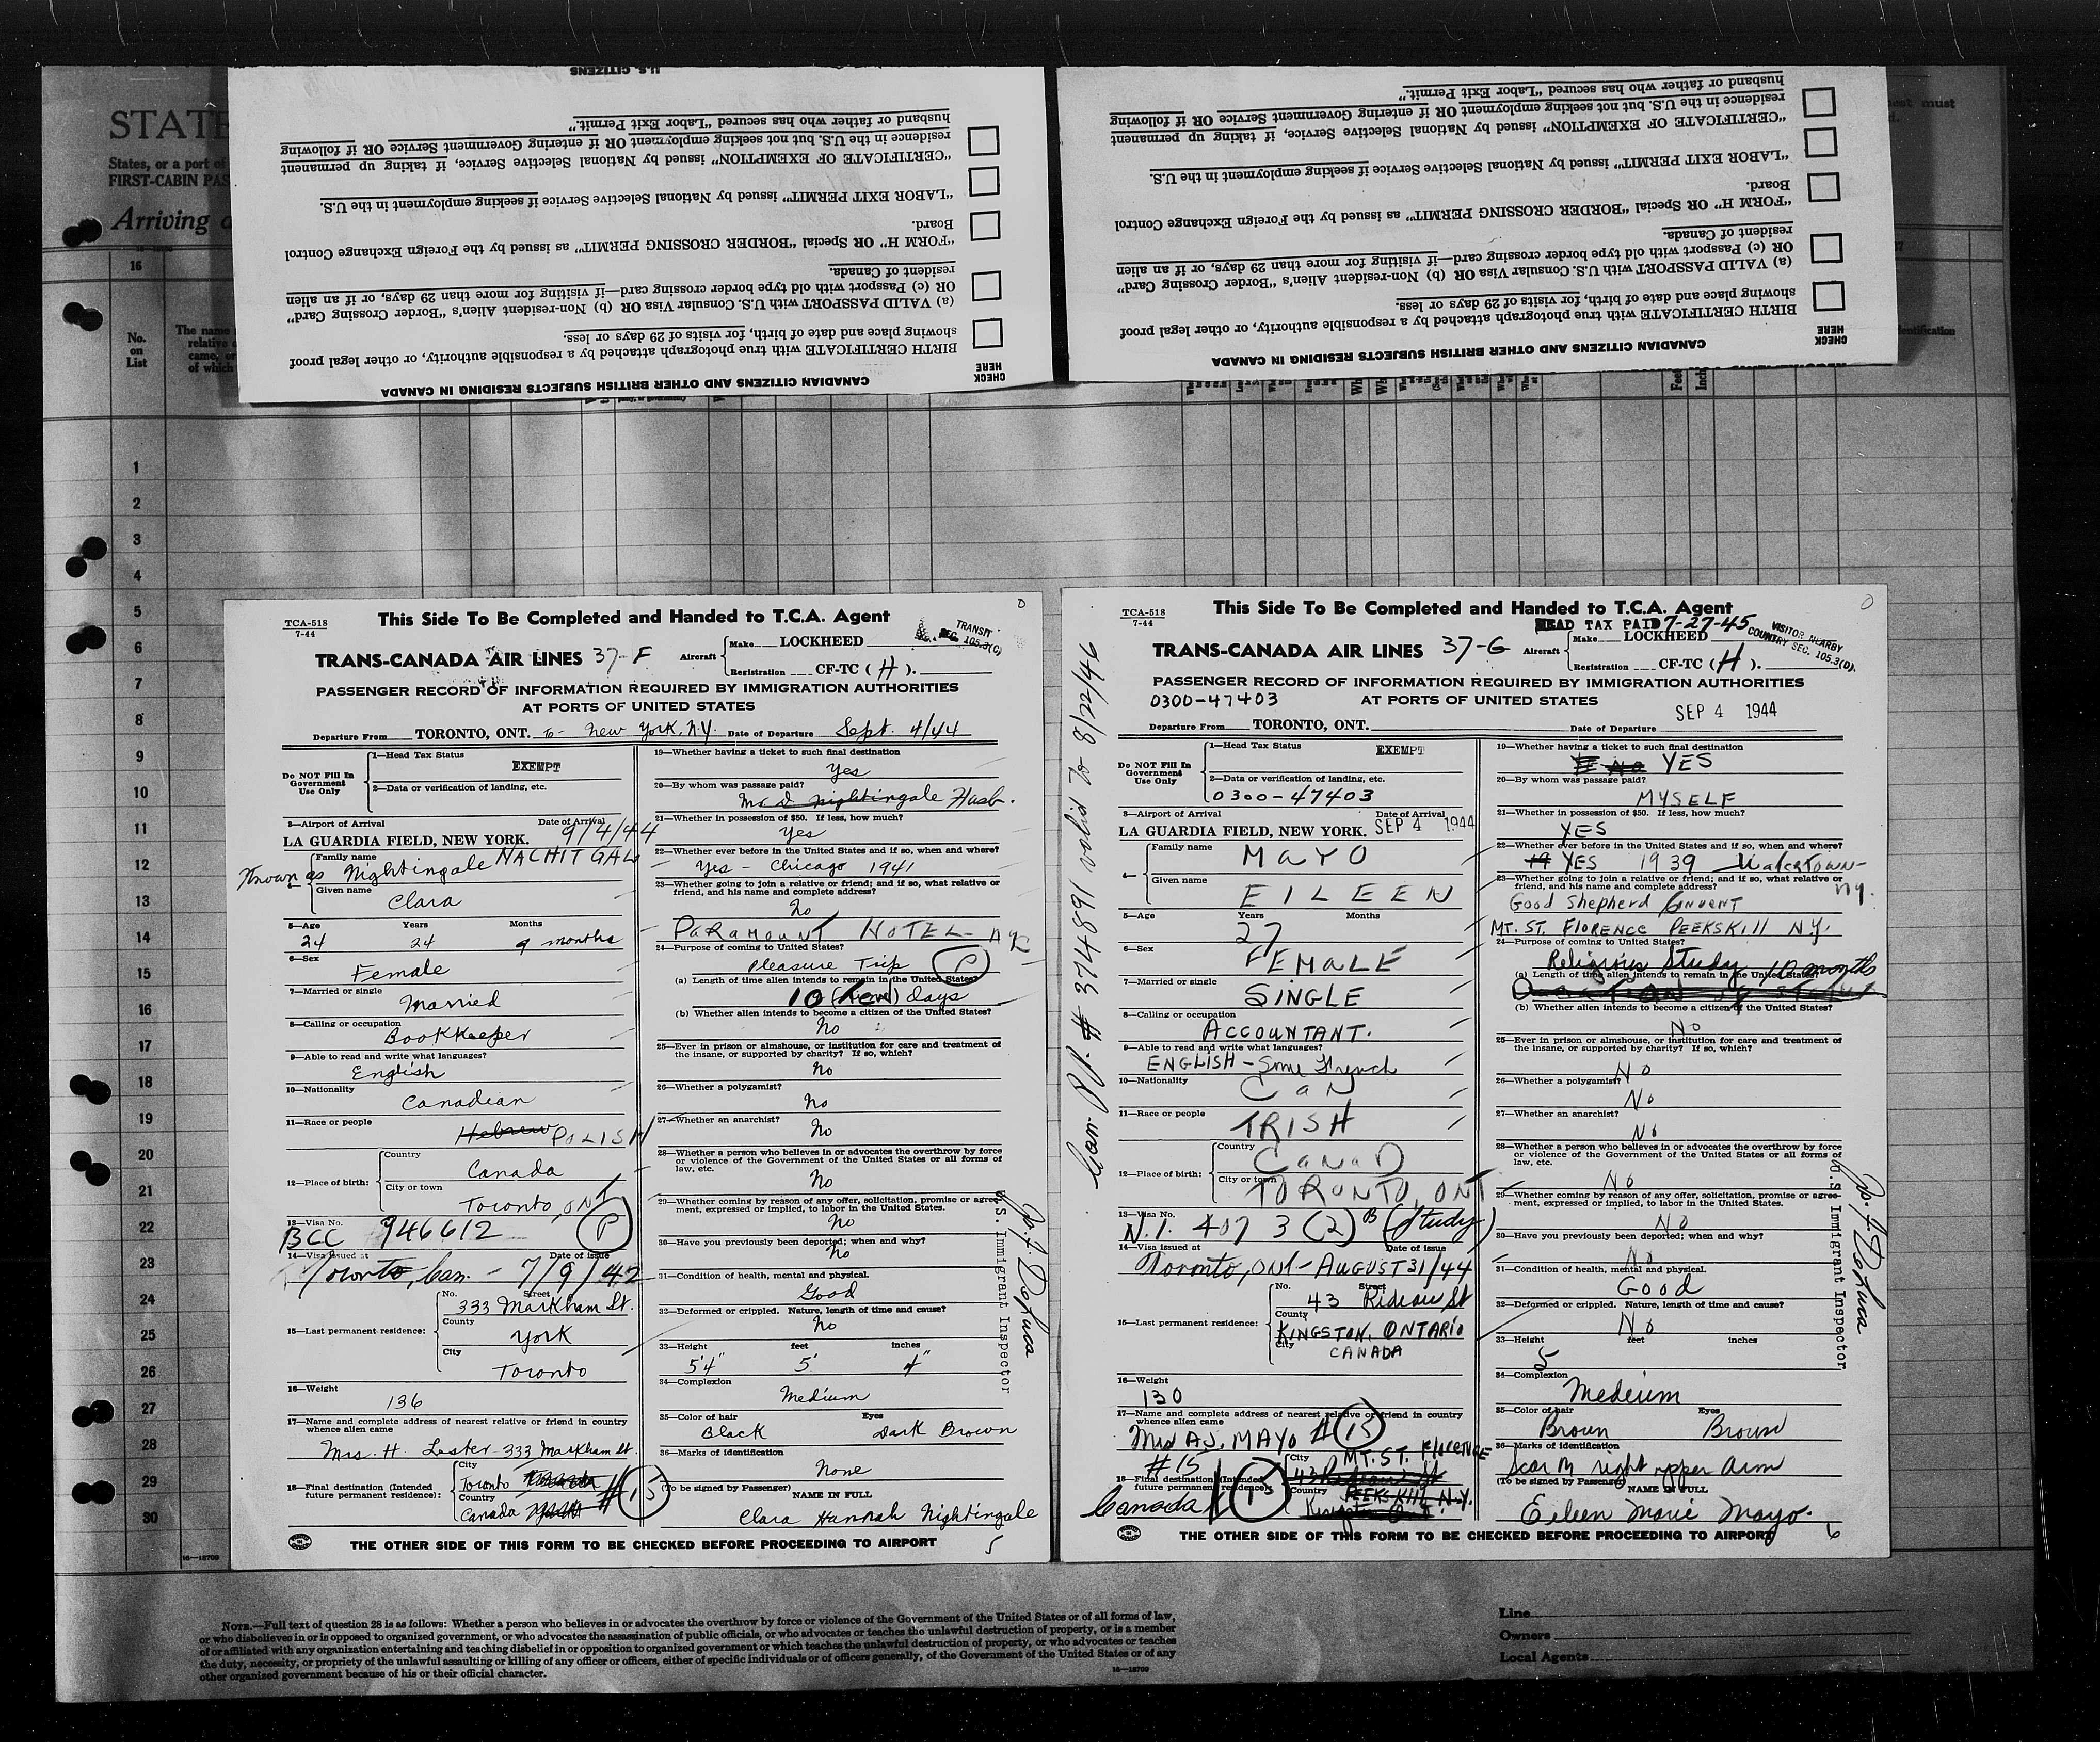 STATE
States, or a port of
FIRST-CABIN PAS
Arriving
16
No.
on
List
The name
relative
came, or
of which
U.S. CITIZENS
husband or father who has secured "Labor Exit Permit."
residence in the U.S. but not seeking employment OR if entering Government Service OR if following
"CERTIFICATE OF EXEMPTION" issued by National Selective Service, if taking up permanent
"LABOR EXIT PERMIT" issued by National Selective Service if seeking employment in the U.S.
Board.
"FORM H" OR Special "BORDER CROSSING PERMIT" as issued by the Foreign Exchange Control
resident of Canada.
OR (c) Passport with old type border crossing card—if visiting for more than 29 days, or if an alien
(a) VALID PASSPORT with U.S. Consular Visa OR (b) Non-resident Alien's "Border Crossing Card"
showing place and date of birth, for visits of 29 days or less.
BIRTH CERTIFICATE with true photograph attached by a responsible authority, or other legal proof
CHECK
HERE
CANADIAN CITIZENS AND OTHER BRITISH SUBJECTS RESIDING IN CANADA
husband or father who has secured "Labor Exit Permit."
residence in the U.S. but not seeking employment OR if entering Government Service OR if following
"CERTIFICATE OF EXEMPTION" issued by National Selective Service, if taking up permanent
"LABOR EXIT PERMIT" issued by National Selective Service if seeking employment in the U.S.
Board.
"FORM H" OR Special "BORDER CROSSING PERMIT" as issued by the Foreign Exchange Control
resident of Canada.
OR (c) Passport with old type border crossing card—if visiting for more than 29 days, or if an alien
(a) VALID PASSPORT with U.S. Consular Visa OR (b) Non-resident Alien's "Border Crossing Card"
showing place and date of birth, for visits of 29 days or less.
BIRTH CERTIFICATE with true photograph attached by a responsible authority, or other legal proof
CHECK
HERE
CANADIAN CITIZENS AND OTHER BRITISH SUBJECTS RESIDING IN CANADA
must
1
2
3
4
5
6
7
8
9
10
11
12
13
14
15
16
17
18
19
20
21
22
23
24
25
26
27
28
29
30
16—18709
TCA-518
7-44
This Side To Be Completed and Handed to T.C.A. Agent
TRANSIT
SEC. 105.3(C)
TRANS-CANADA AIR LINES 37-F
Aircraft Make LOCKHEED
Registration CF-TC (H).
PASSENGER RECORD OF INFORMATION REQUIRED BY IMMIGRATION AUTHORITIES
AT PORTS OF UNITED STATES
Departure From TORONTO, ONT. to- New York, N.Y. Date of Departure Sept. 4/44
Do NOT Fill In
Government
Use Only
1—Head Tax Status
EXEMPT
2—Data or verification of landing, etc.
3—Airport of Arrival Date of Arrival
LA GUARDIA FIELD, NEW YORK. 9/4/44
Family name
Known as Nightingale NACHTIGAL
Given name
Clara
5—Age Years Months
24 24 9 months
6—Sex
Female
7—Married or single
Married
8—Calling or occupation
Bookkeeper
9—Able to read and write what languages?
English
10—Nationality
Canadian
11—Race or people
Hebrew POLISH
12—Place of birth:
Country
Canada
City or town
Toronto, ONT
13—Visa No.
BCC 946612 P
14—Visa issued at Date of issue
Toronto, Can. - 7/9/42
15—Last permanent residence:
No. Street
333 Markham St.
County
York
City
Toronto
16—Weight
136
17—Name and complete address of nearest relative or friend in country
whence alien came
Mrs. H. Lester 333 Markham St.
18—Final destination (Intended
future permanent residence):
City
Toronto
Country
Canada
#15
19—Whether having a ticket to such final destination
Yes
20—By whom was passage paid?
Nightingale Husb.
21—Whether in possession of $50. If less, how much?
Yes
22—Whether ever before in the United States and if so, when and where?
Yes - Chicago 1941
23—Whether going to join a relative or friend; and if so, what relative or
friend, and his name and complete address?
No
PARAMOUNT HOTEL
24—Purpose of coming to United States?
Pleasure Trip P
(a) Length of time alien intends to remain in the United States?
10 (Ten) days
(b) Whether alien intends to become a citizen of the United States?
No
25—Ever in prison or almshouse, or institution for care and treatment of
the insane, or supported by charity? If so, which?
No
26—Whether a polygamist?
No
27—Whether an anarchist?
No
28—Whether a person who believes in or advocates the overthrow by force
or violence of the Government of the United States or all forms of
law, etc.
No
29—Whether coming by reason of any offer, solicitation, promise or agree-
ment, expressed or implied, to labor in the United States.
No
30—Have you previously been deported; when and why?
No
31—Condition of health, mental and physical.
Good
32—Deformed or crippled. Nature, length of time and cause?
No
33—Height feet inches
5'4" 5' 4"
34—Complexion
Medium
35—Color of hair Eyes
Black Dark Brown
36—Marks of identification
None
(To be signed by Passenger) NAME IN FULL
Clara Hannah Nightingale
U.S. Immigrant Inspector
THE OTHER SIDE OF THIS FORM TO BE CHECKED BEFORE PROCEEDING TO AIRPORT
5
Can. P.P. # 374891 valid To 8/22/46
TCA-518
7-44
This Side To Be Completed and Handed to T.C.A. Agent
HEAD TAX PAID 7-27-45
VISITOR NEARBY
COUNTRY SEC. 105.3(D).
TRANS-CANADA AIR LINES 37-G
Aircraft Make LOCKHEED
Registration CF-TC (H).
PASSENGER RECORD OF INFORMATION REQUIRED BY IMMIGRATION AUTHORITIES
0300-47403 AT PORTS OF UNITED STATES
SEP 4 1944
Departure From TORONTO, ONT. Date of Departure
Do NOT Fill In
Government
Use Only
1—Head Tax Status
EXEMPT
2—Data or verification of landing, etc.
0300-47403
3—Airport of Arrival Date of Arrival
LA GUARDIA FIELD, NEW YORK. SEP 4 1944
4—
Family name
MAYO
Given name
EILEEN
5—Age Years Months
27
6—Sex
FEMALE
7—Married or single
SINGLE
8—Calling or occupation
ACCOUNTANT.
9—Able to read and write what languages?
ENGLISH - Some French
10—Nationality
CAN
11—Race or people
IRISH
12—Place of birth:
Country
CANAD
City or town
TORONTO, ONT
13—Visa No.
N.I. 407 3(2)B (Study)
14—Visa issued at Date of issue
Toronto, Ont - AUGUST 31/44
15—Last permanent residence:
No. Street
43 Rideau St
County
KINGSTON, ONTARIO
City
CANADA
16—Weight
130
17—Name and complete address of nearest relative or friend in country
whence alien came
Mrs A.J. MAYO #15
#15
18—Final destination (Intended
future permanent residence):
Canada
15
City
MT. ST. FLORENCE
43 Rideau St
Country
PEEKSKILL N.Y.
19—Whether having a ticket to such final destination
No YES
20—By whom was passage paid?
MYSELF
21—Whether in possession of $50. If less, how much?
YES
22—Whether ever before in the United States and if so, when and where?
19 YES 1939 Watertown-
N.Y.
23—Whether going to join a relative or friend; and if so, what relative or
friend, and his name and complete address?
Good Shepherd Convent
MT. ST. FLORENCE PEEKSKILL N.Y.
24—Purpose of coming to United States?
Religious Study 10 months
(a) Length of time alien intends to remain in the United States?
(b) Whether alien intends to become a citizen of the United States?
No
25—Ever in prison or almshouse, or institution for care and treatment of
the insane, or supported by charity? If so, which?
No
26—Whether a polygamist?
No
27—Whether an anarchist?
No
28—Whether a person who believes in or advocates the overthrow by force
or violence of the Government of the United States or all forms of
law, etc.
No
29—Whether coming by reason of any offer, solicitation, promise or agree-
ment, expressed or implied, to labor in the United States.
No
30—Have you previously been deported; when and why?
No
31—Condition of health, mental and physical.
Good
32—Deformed or crippled. Nature, length of time and cause?
No
33—Height feet inches
5
34—Complexion
Medeium
35—Color of hair Eyes
Brown Brown
36—Marks of identification
Scar on right upper arm
(To be signed by Passenger) NAME IN FULL
Eileen Marie Mayo.
U.S. Immigrant Inspector
THE OTHER SIDE OF THIS FORM TO BE CHECKED BEFORE PROCEEDING TO AIRPORT
6
NOTE.—Full text of question 28 is as follows: Whether a person who believes in or advocates the overthrow by force or violence of the Government of the United States or of all forms of law,
or who disbelieves in or is opposed to organized government, or who advocates the assassination of public officials, or who advocates or teaches the unlawful destruction of property, or is a member
of or affiliated with any organization entertaining and teaching disbelief in or opposition to organized government or which teaches the unlawful destruction of property, or who advocates or teaches
the duty, necessity, or propriety of the unlawful assaulting or killing of any officer or officers, either of specific individuals or of officers generally, of the Government of the United States or of any
other organized government because of his or their official character.
16—18709
Line
Owners
Local Agents